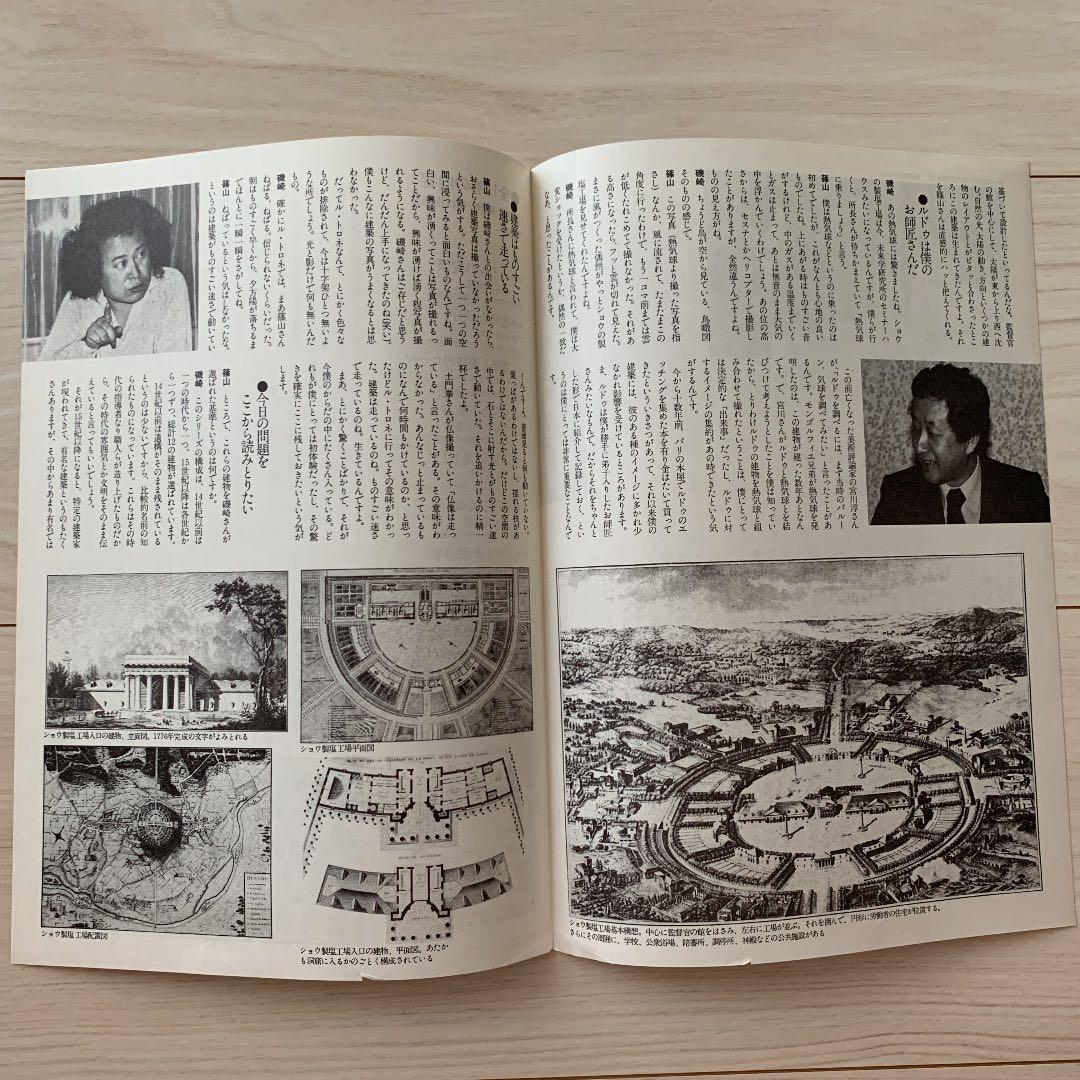 基づいて設計したといってるんだな。監督官
の館を中心にして、太陽が東から上り西へ沈
む、自然の光、太陽の動き、方向といくつかの建
物のレイアウトとがピタッと合わさったとこ
ろにこの建築は生まれてきたんですよ。それ
を篠山さんは直感的にハッと捉えてくれる。
●ルドゥは僕の
お師匠さんだ
磯崎 あの熱気球には驚きましたね。ショウ
の製塩工場は今、未来学研究所のセミナーハ
ウスみたいになっているんですが、僕らが行
くと、所長さんが待ちかまえていて「熱気球
に乗りませんか」と言う。
篠山 僕は熱気球などというものに乗ったのは
初めてでしたが、これがなんとも心地の良い
ものでしたね。上にあがる時はものすごい音
がするけれど、中のガスがある温度までいく
とガスは止まって、あとは無音のまま大気の
中を浮かんでいくわけでしょう。あの位の高
さからは、セスナとかヘリコプターで撮影し
たことがありますが、全然違うんですよね、
ものの見え方がね。
磯崎 ちょうど鳥が空から見ている、鳥瞰図
そのものの感じで。
篠山 この写真（熱気球より撮った写真を指
さし）なんか、風に流されて、たまたまこの
角度に行ったわけで、もう一コマ前までは雲
が低くたれこめてて撮れなかった。それがあ
る高さになったら、フッと雲が切れて見えた。
まさに風がつくった偶然がやっとショウの製
塩工場を見せてくれたんですよね。
磯崎 所長さんに熱気球と言われて、僕は大
変ショックを受けたというか、偶然の一致だ
なあ、と思ったことがあるんです。
この前亡くなった美術評論家の宮川淳さん
が、「ルドゥを調べるには、まず当時のバルー
ン、気球を調べてみたい」と言ったことがあ
るんです。モンゴルフィエ兄弟が熱気球を発
明したのは、この建物が建った数年あとなん
です。で、宮川さんがルドゥと熱気球とを結
びつけて考えようとしたことを僕は知ってい
たから、とりわけルドゥの建築を熱気球と組
み合わせて撮れたということは、僕にとって
は決定的な「出来事」だったし、ルドゥに対
するイメージの集約があの時できたという気
がするんです。
今から十数年前、パリの本屋でルドゥのエ
ッチングを集めた本を有り金をはたいて買って
きたといういきさつがあって、それ以来僕の
建築には、彼のある種のイメージに多かれ少
なかれ影響を受けているところがあります。
ま、ルドゥは僕が勝手に弟子入りしたお師匠
さんみたいなもんで、だからそれをちゃんと
した形で日本に紹介して記録しておく、とい
うのは僕にとっては非常に重要なことなんで
ショウ製塩工場基本構想。中心に監督官の館をはさみ、左右に工場が並ぶ。それを囲んで、円形に労働者の住宅が位置する。
さらにその周囲に、学校、公衆浴場、陪審所、調停所、神殿などの公共施設がある
●建築はものすごい
速さで走っている
篠山 僕は磯崎さんとの出会いがなかったら、
おそらく建築写真は撮っていなかっただろう
という気がする。ただこうして一つ一つの空
間に浸ってみると面白いものなんですね。面
白い、興味が湧くってことは写真が撮れるっ
てことだから、興味が湧けば湧く程写真が撮
れるようになる。磯崎さんはご存じだと思う
けど、だんだん上手になってきたのね（笑い）。
僕もこんなに建築の写真がうまくなるとは思
わなかった。
だってル・トロネなんて、とにかく色々な
ものが排除されて、今は十字架ひとつ無いよ
うな所でしょう。光と影だけで何も無いんだ
もの。
磯崎 確かにル・トロネでは、まあ篠山さん
ねばる、ねばる。信じられないくらいだった。
朝はものすごく早くから、夕方陽が落ちるま
でほんとに一瞬一瞬をさがしてね。
篠山 ねばっているという気はしなかったな。
というのは建築がものすごい速さで動いてい
くんですよ。普通見ると何も動いていない。
葉っぱがあるわけではないし、揺れる枝があ
るわけではないんだから。でも、あの空間の
中では、そこに射す光とかがものすごい速
さで動いていた。それを追いかけるのに精一
杯でしたよ。
土門拳さんが仏像撮ってて「仏像は走っ
ている」と言ったことがある。その意味がわ
からなかった。あんなじっと止まっているも
のになんで何時間もかけているのか、と思っ
たけどル・トロネに行ってその意味がわかっ
た。建築は走っているのね、ものすごい速さ
で走っているのね。生きているんですよ。
まあ、とにかく驚くことばかりで、それが
今僕のからだの中にたくさん入っている。ど
れもが僕にとっては初体験だったし、その驚
きを確実にここに残しておきたいという気が
します。
●今日の問題を
ここから読みとりたい
篠山 ところで、これらの建物を磯崎さんが
選ばれた基準というのは何ですか。
磯崎 このシリーズの構成は、14世紀以前は
一つの時代から一つ、15世紀以降は各世紀か
ら一つずつ、総計12の建物が選ばれています。
14世紀以前は遺構がそのまま残されている
というのは少ないですから、比較的名前の知
られたものになっています。これらはその時
代の指導者なり職人らが造り上げたものだか
ら、その時代の雰囲気とか文明をそのまま伝
えていると言ってもいいでしょう。
それが15世紀以降になると、特定の建築家
が現われてきて、有名な建築というのもたく
さんありますが、その中からあまり有名では
ショウ製塩工場入口の建物、立面図。1776年完成の文字がよみとれる
ショウ製塩工場平面図
ショウ製塩工場配置図
ショウ製塩工場入口の建物、平面図。あたか
も洞窟に入るかのごとく構成されている